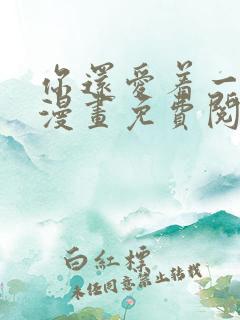 你還愛着一
漫畫免費閱
白紅標
未经同意禁止转载